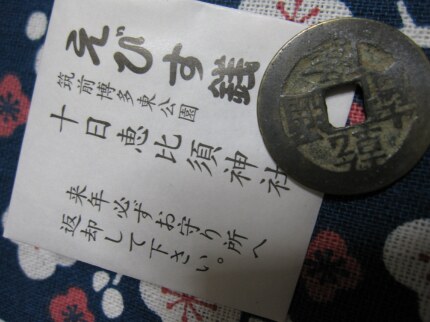 えびす銭
筑前博多東公園
十日恵比須神社
来年必ずお守り所へ
返却して下さい。